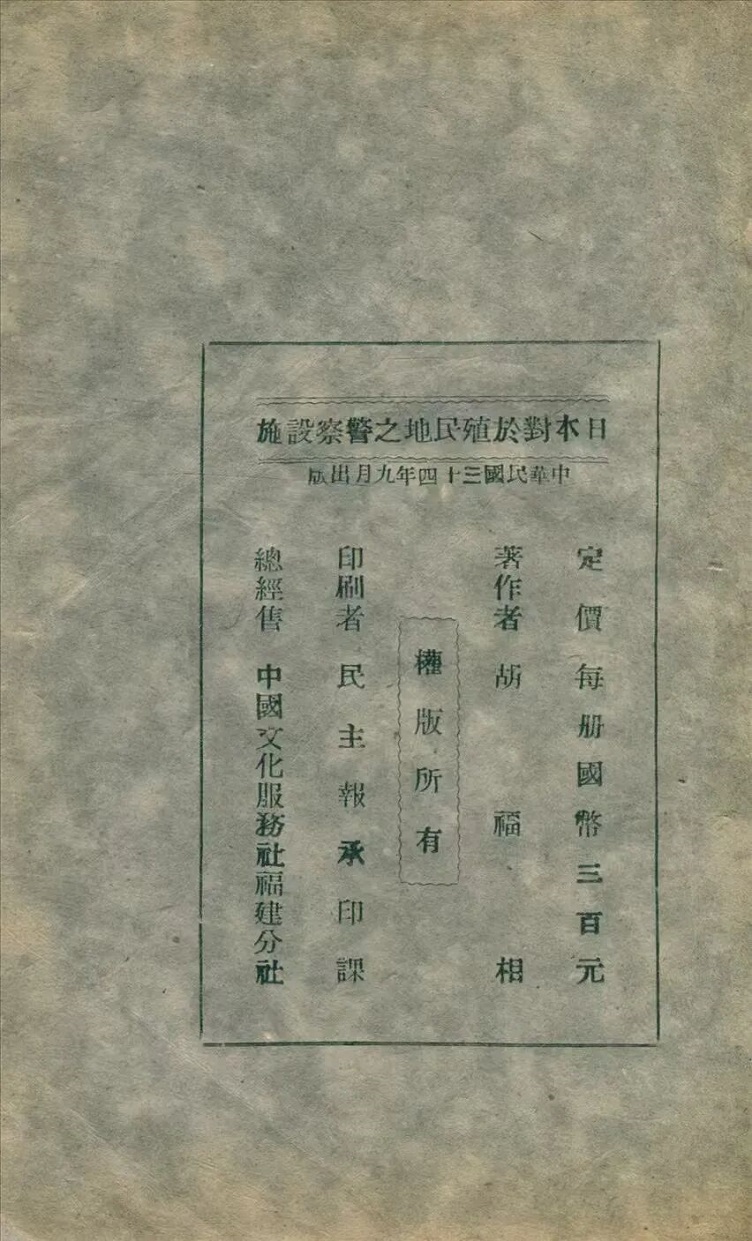 日本對於殖民地之警察設施
中華民國三十四年九月出版
定價每册國幣三百元
著作者 胡福相
權版所有
印刷者 民主報承印課
總經售 中國文化服務社福建分社